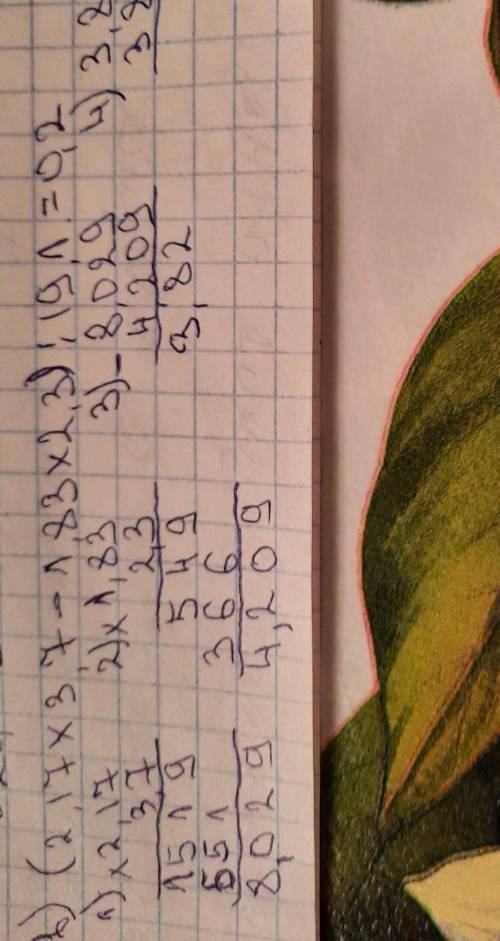 б) (2,17 x 3,7 - 1,83 x 2,3) : 19,1 = 0,2
1) x 2,17
3,7
1519
651
8,029
2) x 1,83
2,3
549
366
4,209
3) - 8,029
4,209
3,82
4) 3,8
3 8